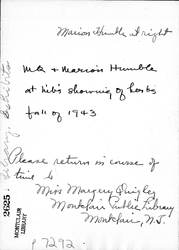 Marion Humble at right
Mr + Marion Humble
at lib's showing of herbs
fall of 1943
Please return in course of
time to
Miss Margery Quigley
Montclair Public Library
Montclair, N.J.
Library. Exhibits
2625.
MONTCLAIR
LIBRARY
p 7292